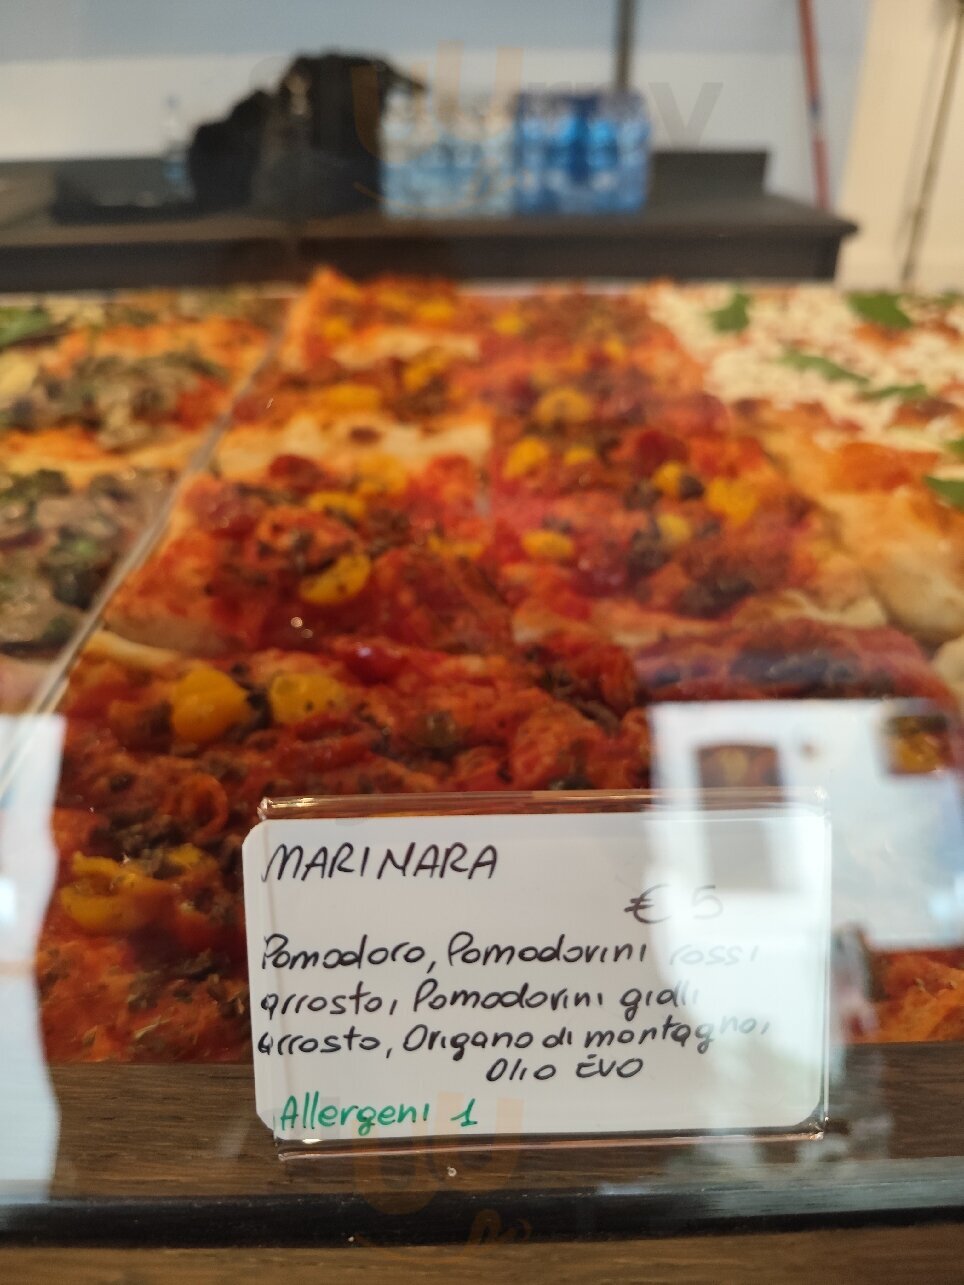 MARINARA
€ 5
Pomodoro, Pomodorini rossi
arrosto, Pomodorini gialli
arrosto, Origano di montagna,
Olio EVO
Allergeni 1